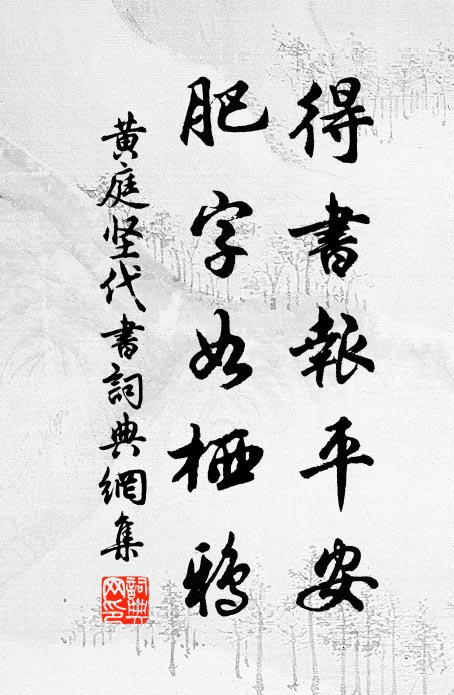 得書報平安
肥字如栖鴉
黄庭坚代書詞典網集
詞典网印